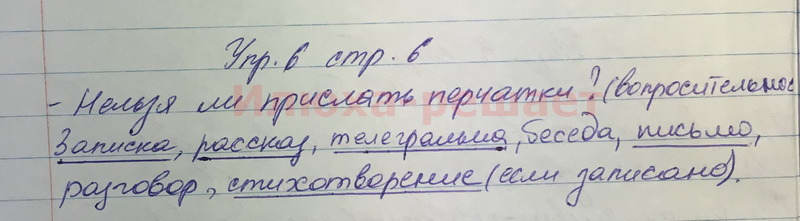 Упр. 6 стр. 6
- Нельзя ли прислать перчатки? (вопросительное
Илюха решает
Записка, рассказ, телеграмма, беседа, письмо,
разговор, стихотворение (если записано).